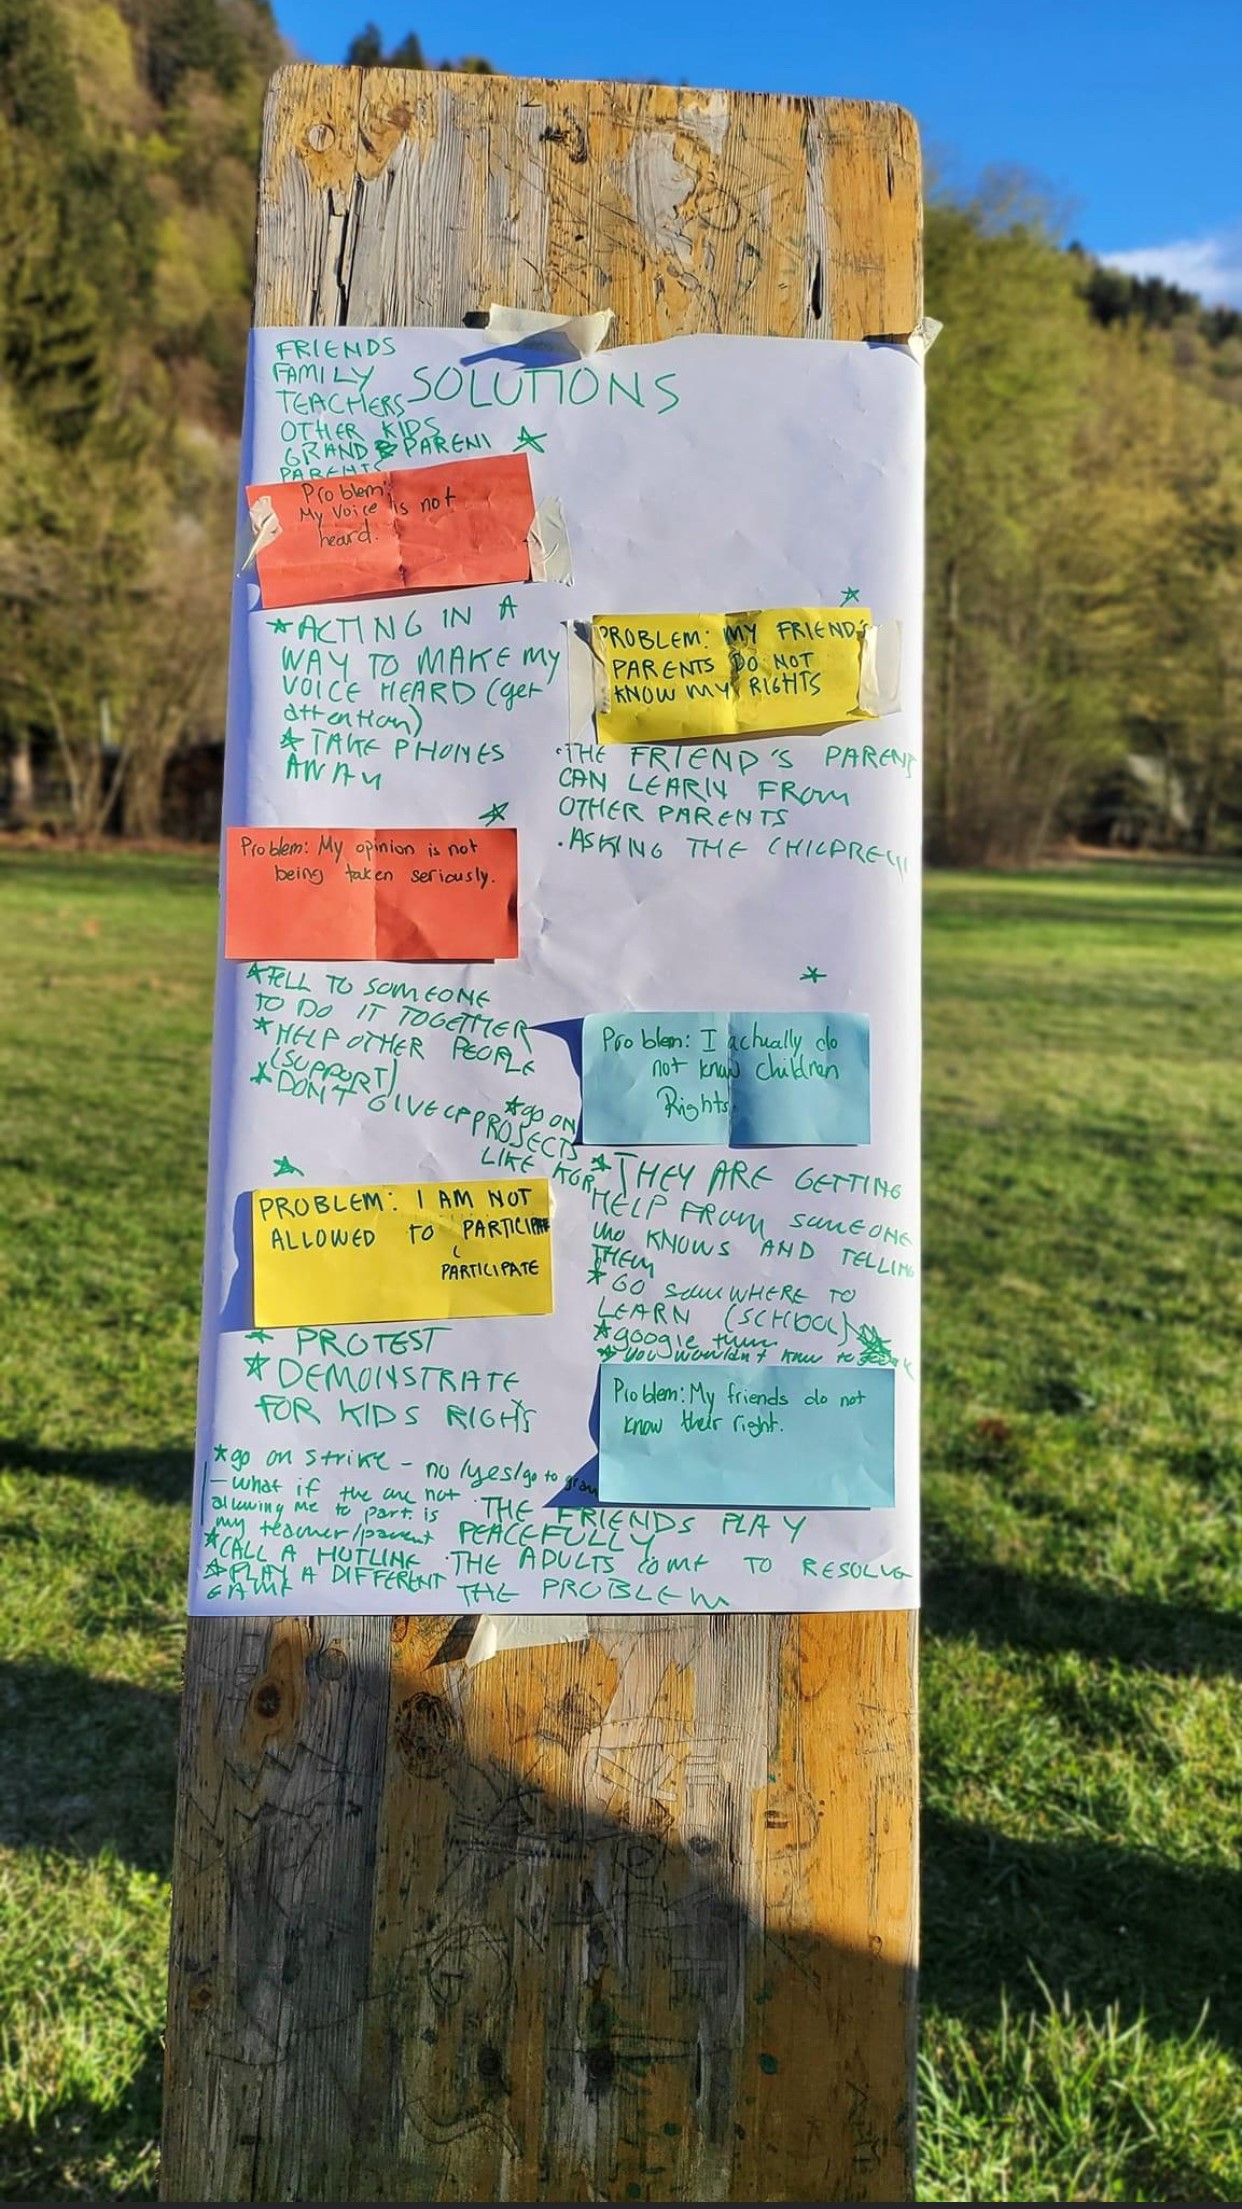 FRIENDS
FAMILY
TEACHERS
OTHER KIDS
GRAND PARENT
PARENTS
SOLUTIONS
Problem:
My Voice is not
heard.
*ACTING IN A
WAY TO MAKE MY
VOICE HEARD (get
attention)
*TAKE PHONES
AWAY
Problem: My opinion is not
being taken seriously.
*TELL TO SOMEONE
TO DO IT TOGETHER
*HELP OTHER PEOPLE
(SUPPORT)
*DON'T GIVE UP
*go on
PROJECTS
LIKE KGR
PROBLEM: I AM NOT
ALLOWED TO PARTICIPATE
PARTICIPATE
* PROTEST
* DEMONSTRATE
FOR KIDS RIGHTS
*go on strike - no /yes/go to
- what if the are not
allowing me to part. is
my teacher/parent
*CALL A HOTLINE
*PLAY A DIFFERENT
GAME
PROBLEM: MY FRIEND'S
PARENTS DO NOT
KNOW MY RIGHTS
·THE FRIEND'S PARENTS
CAN LEARN FROM
OTHER PARENTS
·ASKING THE CHILDREN
Problem: I actually do
not know children
Rights.
*THEY ARE GETTING
HELP FROM SOMEONE
WHO KNOWS AND TELLING
THEM
*GO SOMWHERE TO
LEARN (SCHOOL)
*google them
*you wouldn't know to
Problem: My friends do not
know their right.
·THE FRIENDS PLAY
PEACEFULLY
·THE ADULTS COME TO RESOLVE
THE PROBLEM